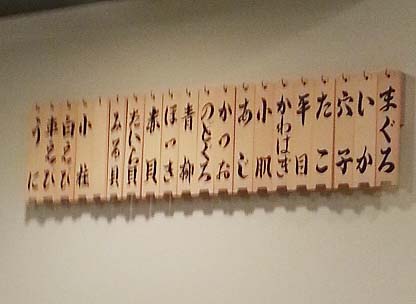 まぐろ
いか
穴子
たこ
平目
かわはぎ
小肌
あじ
かつお
のどぐろ
青柳
ほっき
赤貝
たいら貝
みる貝
小柱
白えび
車えび
うに